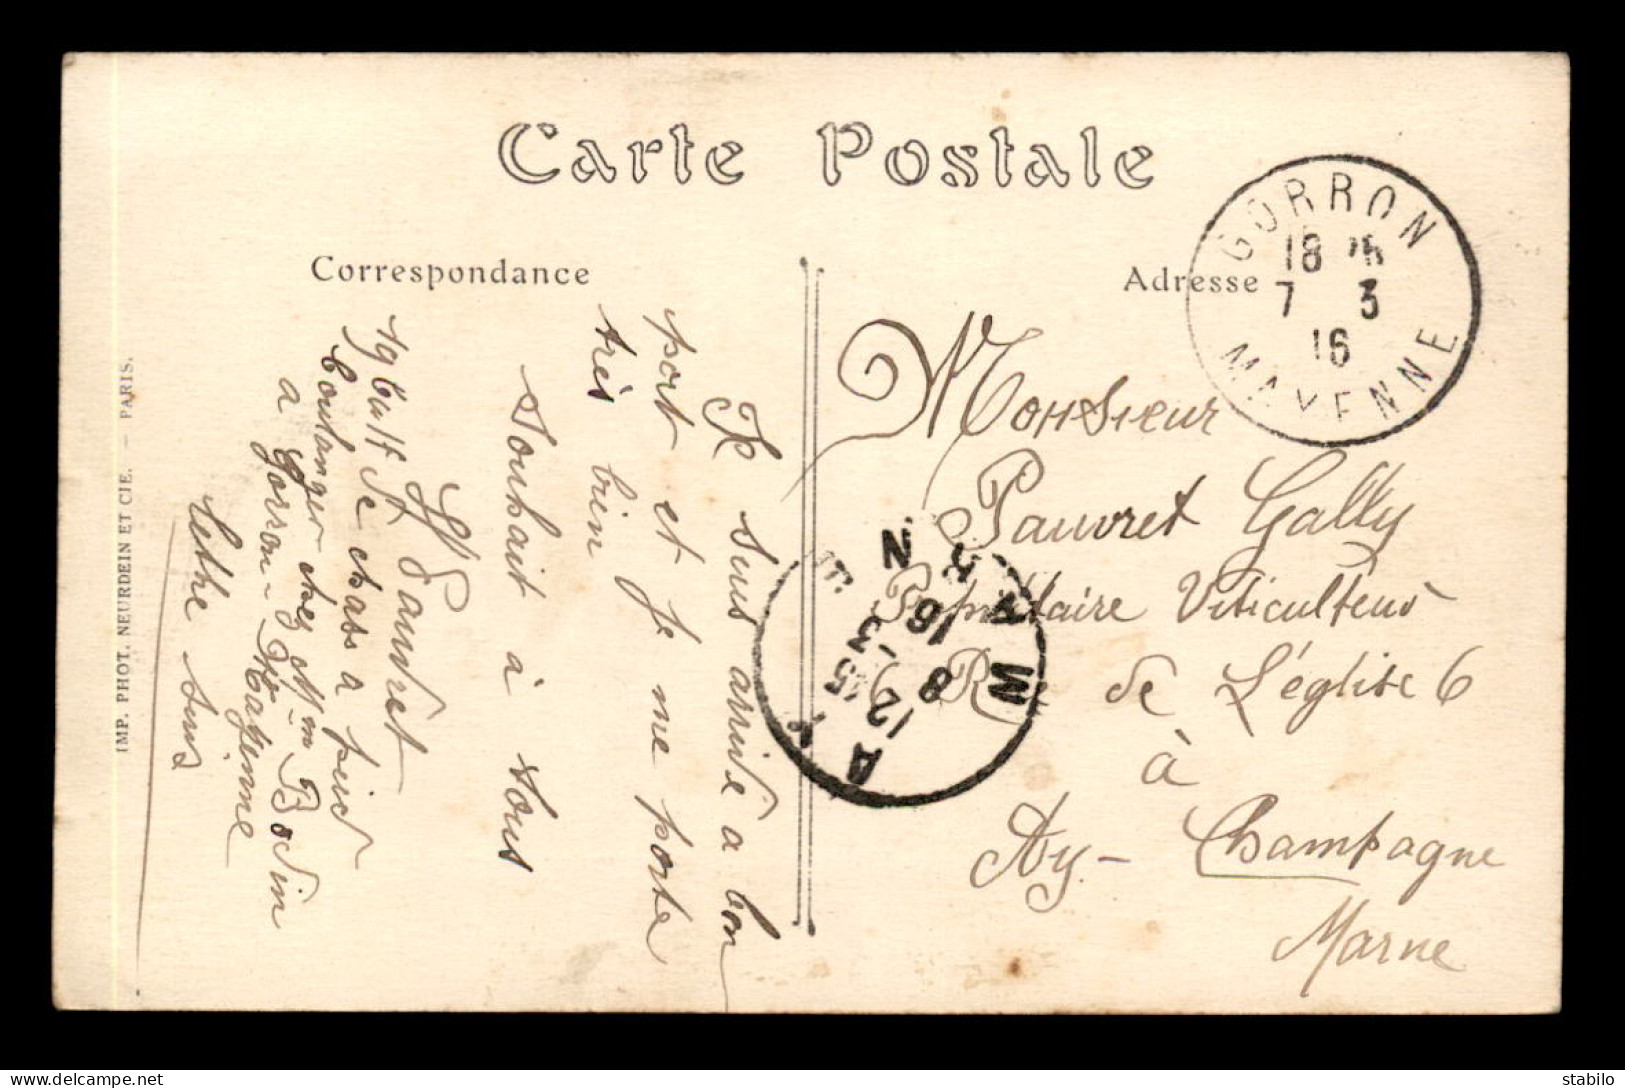 Carte Postale
Correspondance
Adresse
GORRON
18
7 3
16
MAYENNE
Monsieur
Pauvret Gally
Propriétaire Viticulteur
R de L'église 6
à
Ay - Champagne
Marne
AY
12 15
8 3
16
MARN
Je suis arrivé a bon
port et je me porte
très bien
Souhait à vous
H Pauvret
19 de chass a pied
Boulanger chez Mm Bodin
a Gorron - Mayenne
IMP. PHOT. NEURDEIN ET CIE. — PARIS.
stabilo